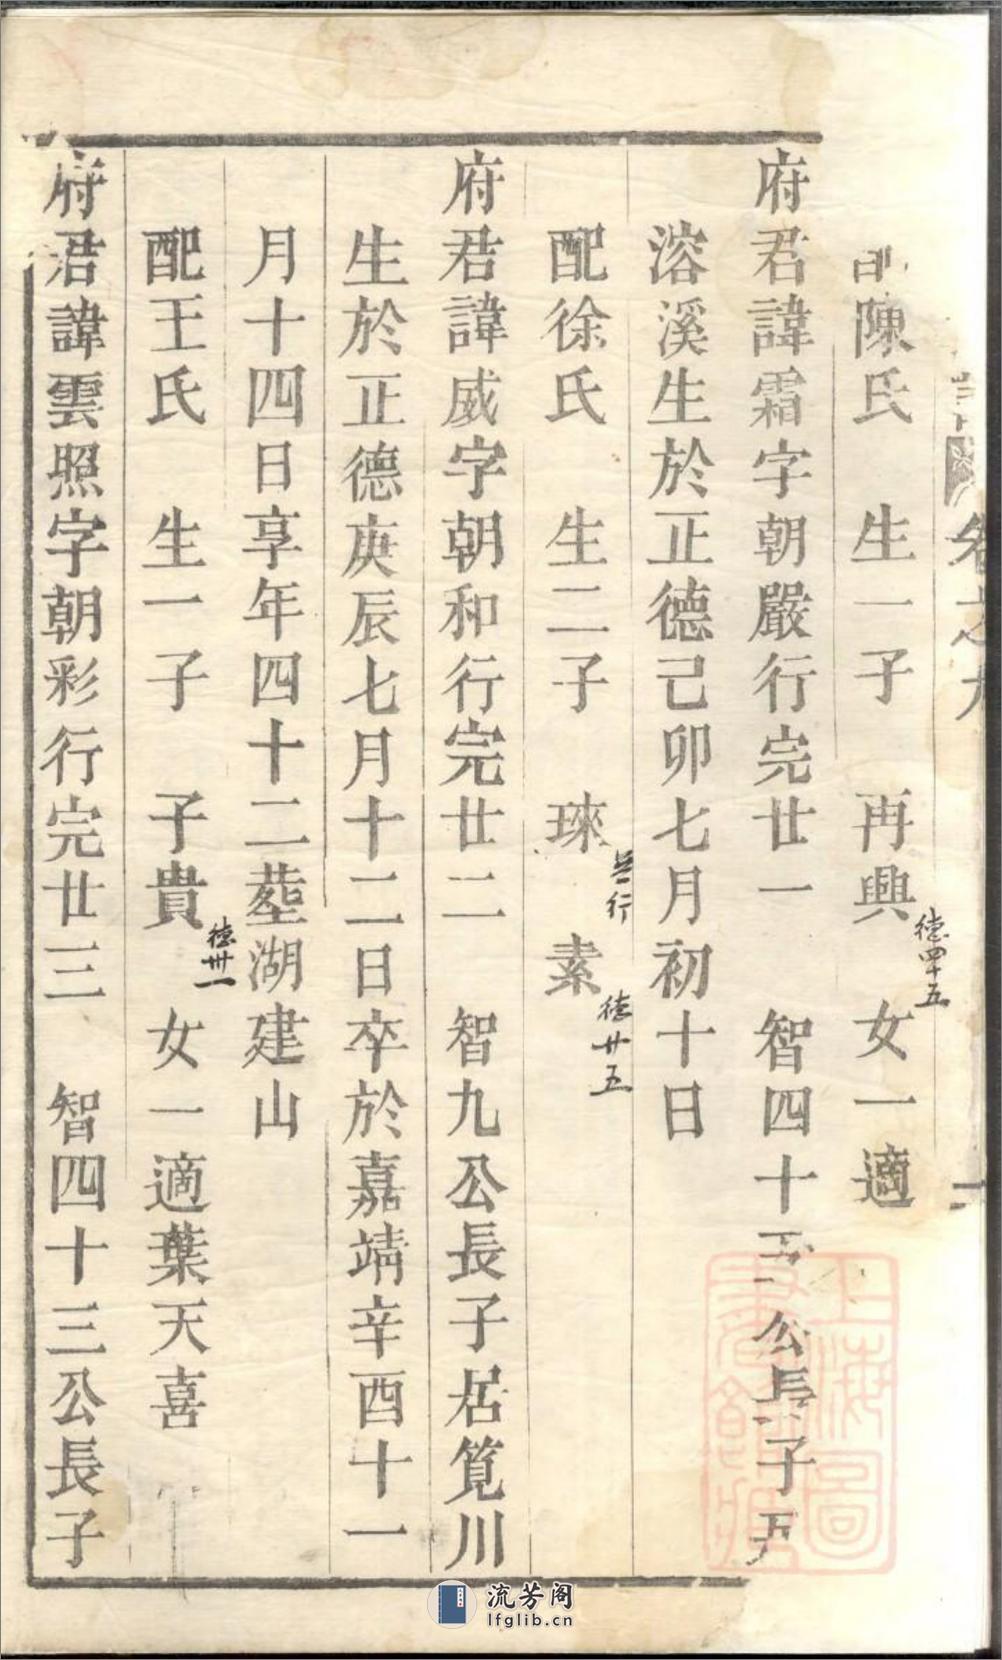 卷之九
陳氏　生一子　再興　女一適
德四十五
府君諱霜字朝嚴行完廿一　智四十五公長子居
溶溪生於正德己卯七月初十日
配徐氏　生二子　琜　素
無行
德廿五
府君諱威字朝和行完廿二　智九公長子居筧川
生於正德庚辰七月十二日卒於嘉靖辛酉十一
月十四日享年四十二塟湖建山
配王氏　生一子　子貴　女一適葉天喜
德卅一
府君諱雲照字朝彩行完廿三　智四十三公長子
上海圖書館藏
流芳阁
lfglib.cn